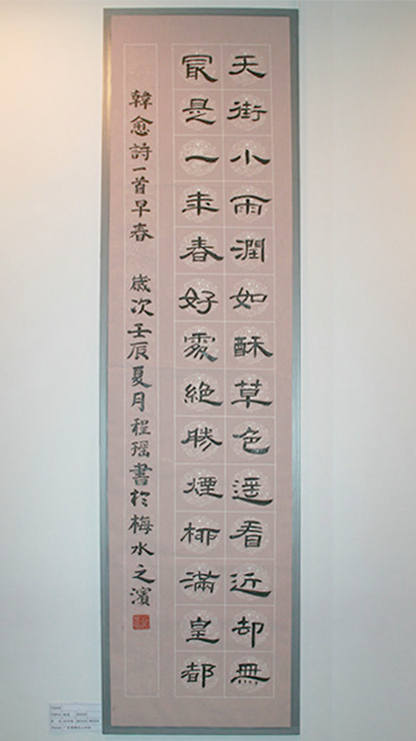 天街小雨潤如酥草色遥看近却無
冣是一年春好處絶勝煙栁滿皇都
韓愈詩一首早春 歲次壬辰夏月程瑶書於梅水之濱